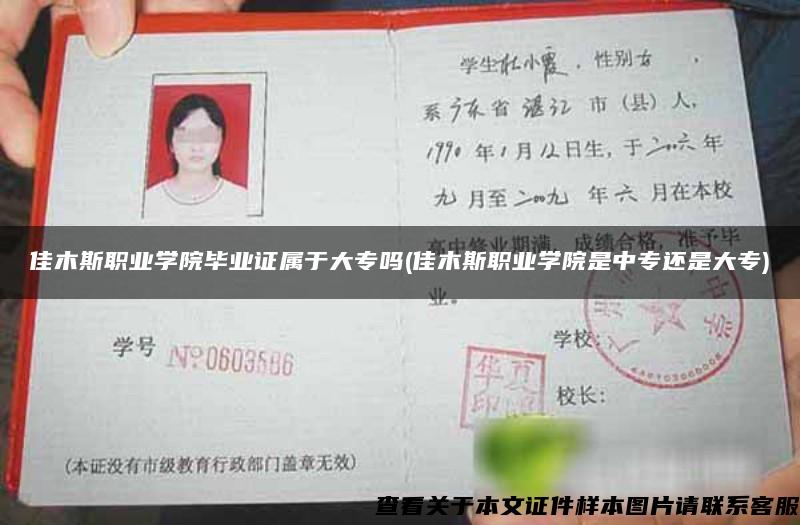 学生杜小霞，性别女，
系广东省湛江市（县）人，
1990年1月12日生，于二00六年
九月至二00九年六月在本校
高中修业期满，成绩合格，准予毕
佳木斯职业学院毕业证属于大专吗(佳木斯职业学院是中专还是大专)
业。
学校：
学号 №0603586
校长：
(本证没有市级教育行政部门盖章无效)
查看关于本文证件样本图片请联系客服